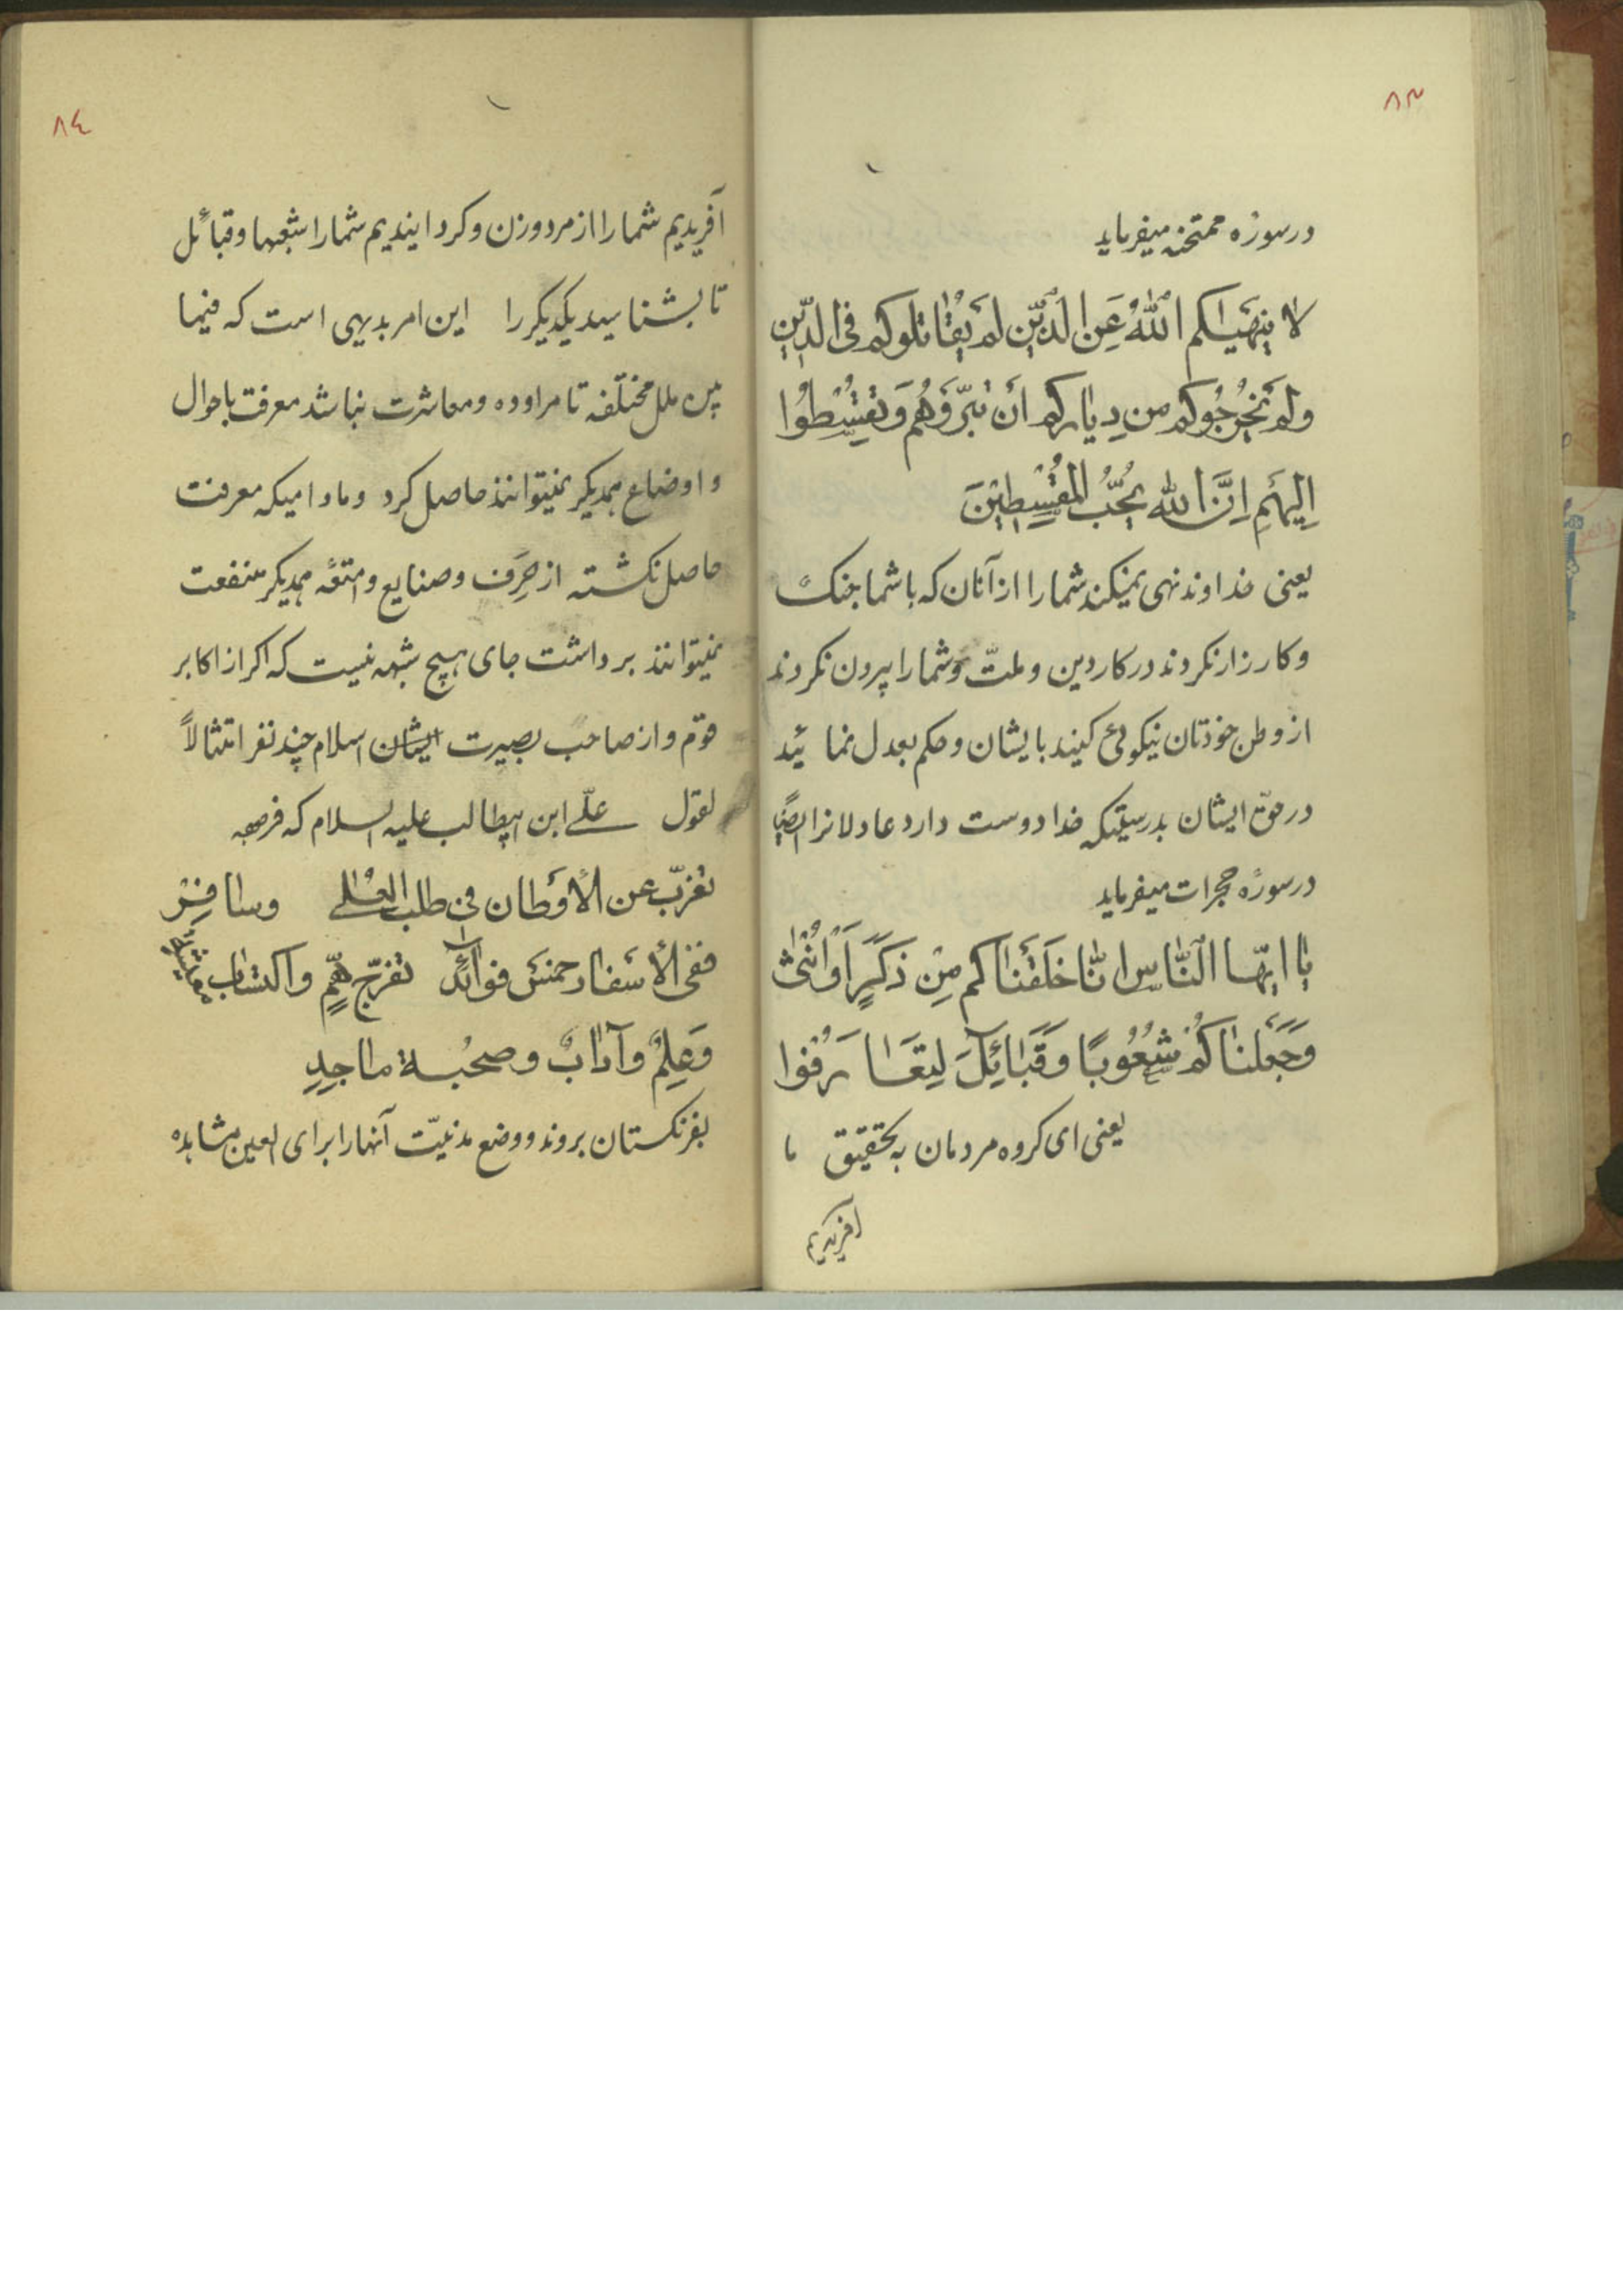 ۸۳
در سورهٔ ممتحنه میفرماید
لا ینهیٰکم اللهُ عَنِ الَّذین لَم یُقٰاتلوکم فی الدّینِ
ولَم یُخْرِجُوکم من دِیٰارِکم أَن تَبَرّوُهُم وَتُقْسِطُوا
اِلیهِم اِنَّ اللّٰه یُحِبُّ المُقْسِطینَ
یعنی خداوند نهی نمیکند شما را از آنان که با شما جنک
و کارزار نکردند در کار دین و ملتّ و شما را بیرون نکردند
از وطن خودتان نیکوئی کنید بایشان و حکم بعدل نمائید
در حقّ ایشان بدرستیکه خدا دوست دارد عادلانرا ایضاً
در سورهٔ حجرات میفرماید
یٰا ایّها النّٰاس انّٰا خَلَقْنٰاکم مِن ذَکَرٍ اَوْ اُنْثیٰ
وَجَعَلنٰاکُم شُعُوبًا وَقَبٰائِلَ لِتَعٰارَفُوا
یعنی ای کروه مردمان به تحقیق ما
آفریدیم
۸٤
آفریدیم شما را از مرد و زن و کردانیدیم شما را شعبها و قبائل
تا بشناسید یکدیکر را این امر بدیهی است که فیما
بین ملل مختلفه تا مراوده و معاشرت نباشد معرفت باحوال
و اوضاع همدیکر نمیتوانند حاصل کرد و مادامیکه معرفت
حاصل نکشته از حِرَف و صنایع و امتعهٔ همدیکر منفعت
نمیتوانند برداشت جای هیچ شبهه نیست که اکر از اکابر
قوم و از صاحب بصیرت ایشان اسلام چند نفر امتثالاً
لقول علّی ابن ابیطالب علیه السلام که فرموده
تغرّب عن الأوطان فی طلب العُلی وسافِرْ
ففی الأسفار خمسُ فوائدٍ تفرّج همٍّ واکتسٰاب معیشةٍ
وَعِلمٌ وآدٰابٌ وصحُبة ماجِدِ
بفرنکستان بروند و وضع مدنیّت آنها را برای العین مشاهده